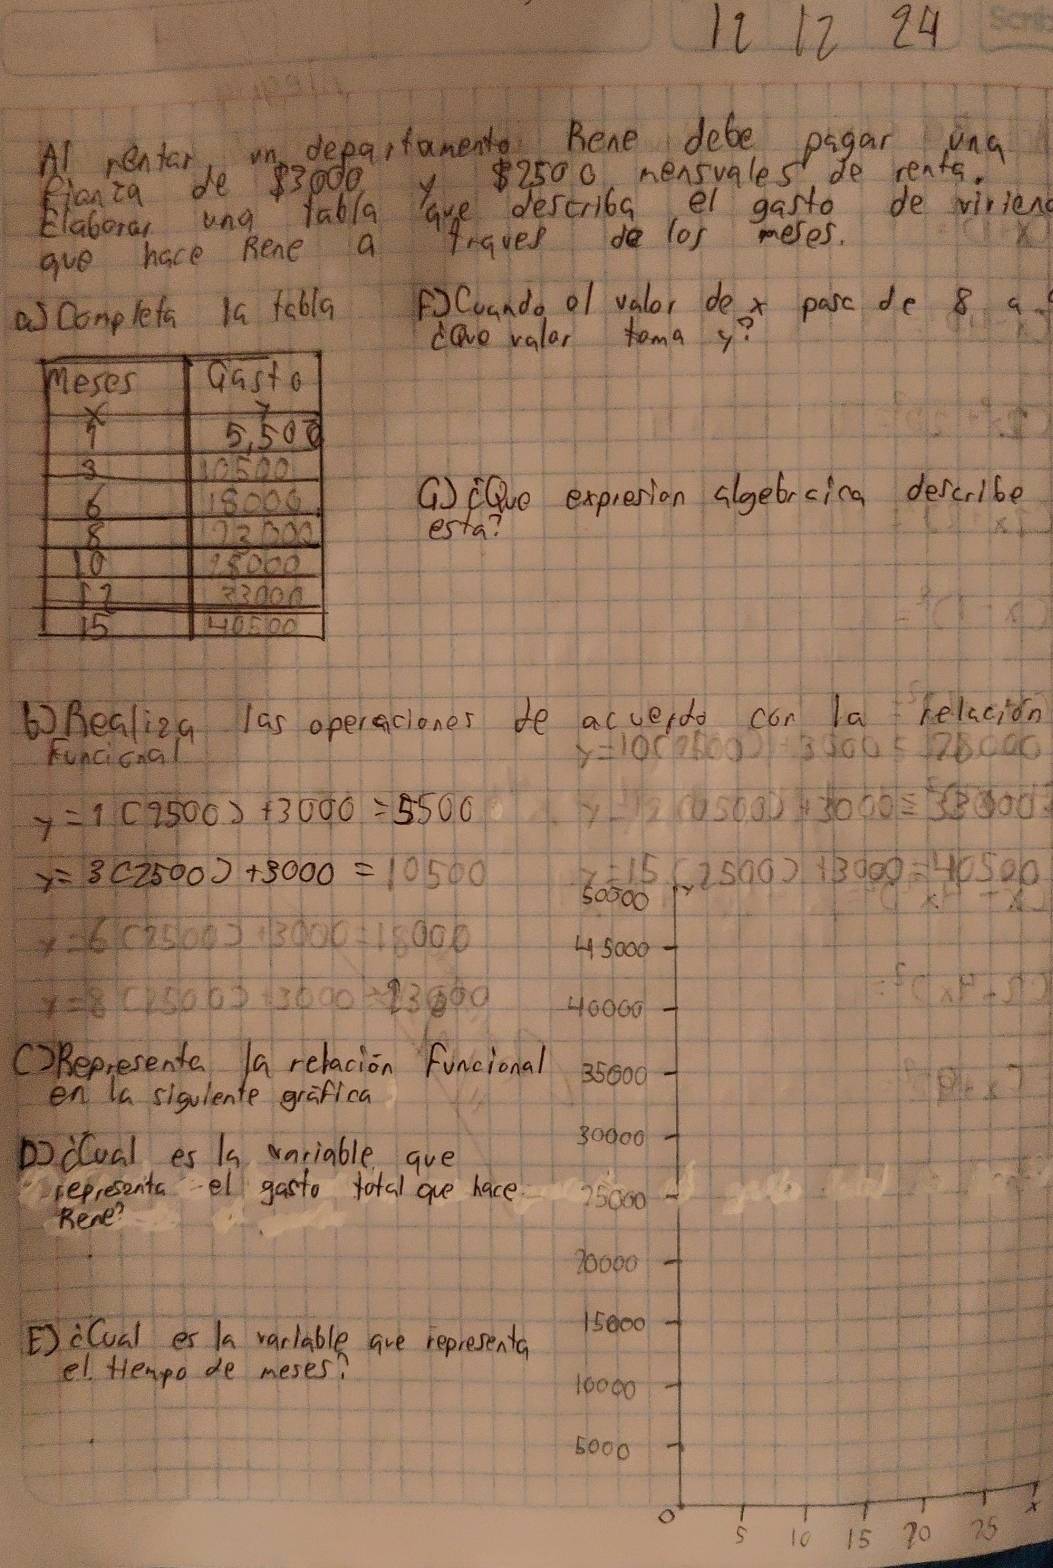 12 12 24
Al rentar un departamento Rene debe pagar una
fianza de $3000 y $2500 mensuales de renta.
Elaborar una tabla que describa el gasto de
que hace Rene a traves de los meses.
a) Completa la tabla
Meses Gasto
x y
1 5,500
3 10500
6 18000
8 23000
10 28000
12 33000
15 40500
F) Cuando el valor de x pasa de 8 a
¿Que valor toma y?
G) ¿Que expresion algebraica describe
esta?
b) Realiza las operaciones de acuerdo con la relación
funcional
y=1(2500)+3000=5500
y=3(2500)+3000=10500
y=6(2500)+3000=18000
y=8(2500)+3000=23000
y=10(2500)+3000=28000
y=12(2500)+3000=33000
y=15(2500)+3000=40500
C) Representa la relación Funcional
en la siguiente gráfica
D) ¿Cual es la variable que
representa el gasto total que hace
Rene?
E) ¿Cual es la variable que representa
el tiempo de meses?
50500 y
45000
40000
35000
30000
25000
20000
15000
10000
5000
0 5 10 15 20 25 x